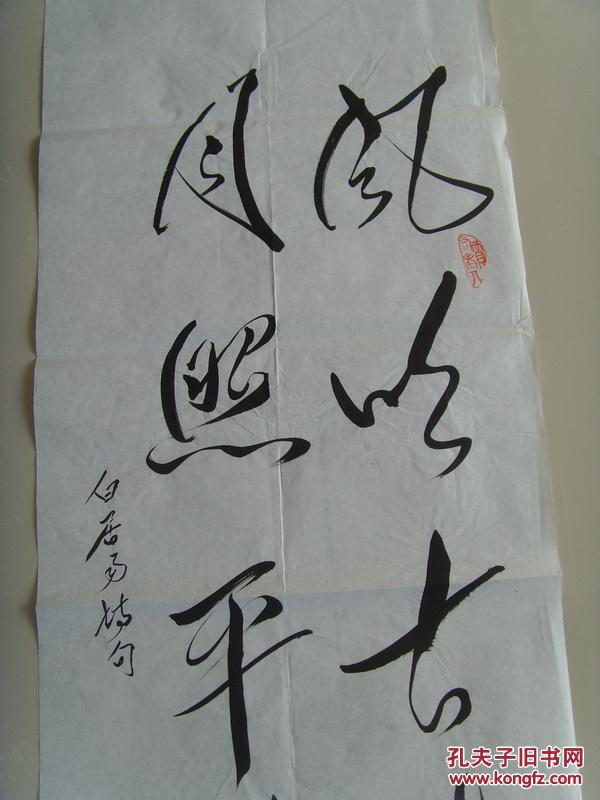 风吹古
月照平
白居易诗句
孔夫子旧书网
www.kongfz.com